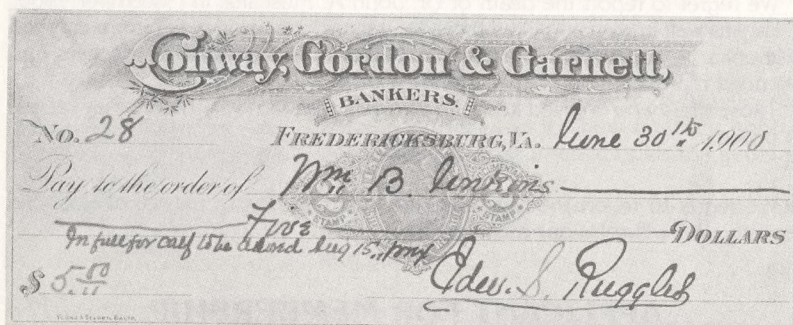 Conway, Gordon & Garnett,
BANKERS.
No. 28 FREDERICKSBURG, VA. June 30th 1900
Pay to the order of Wm. B. Jenkins
Five DOLLARS
In full for calf to be Aug 15
$ 5.00
Edw. S. Ruggles